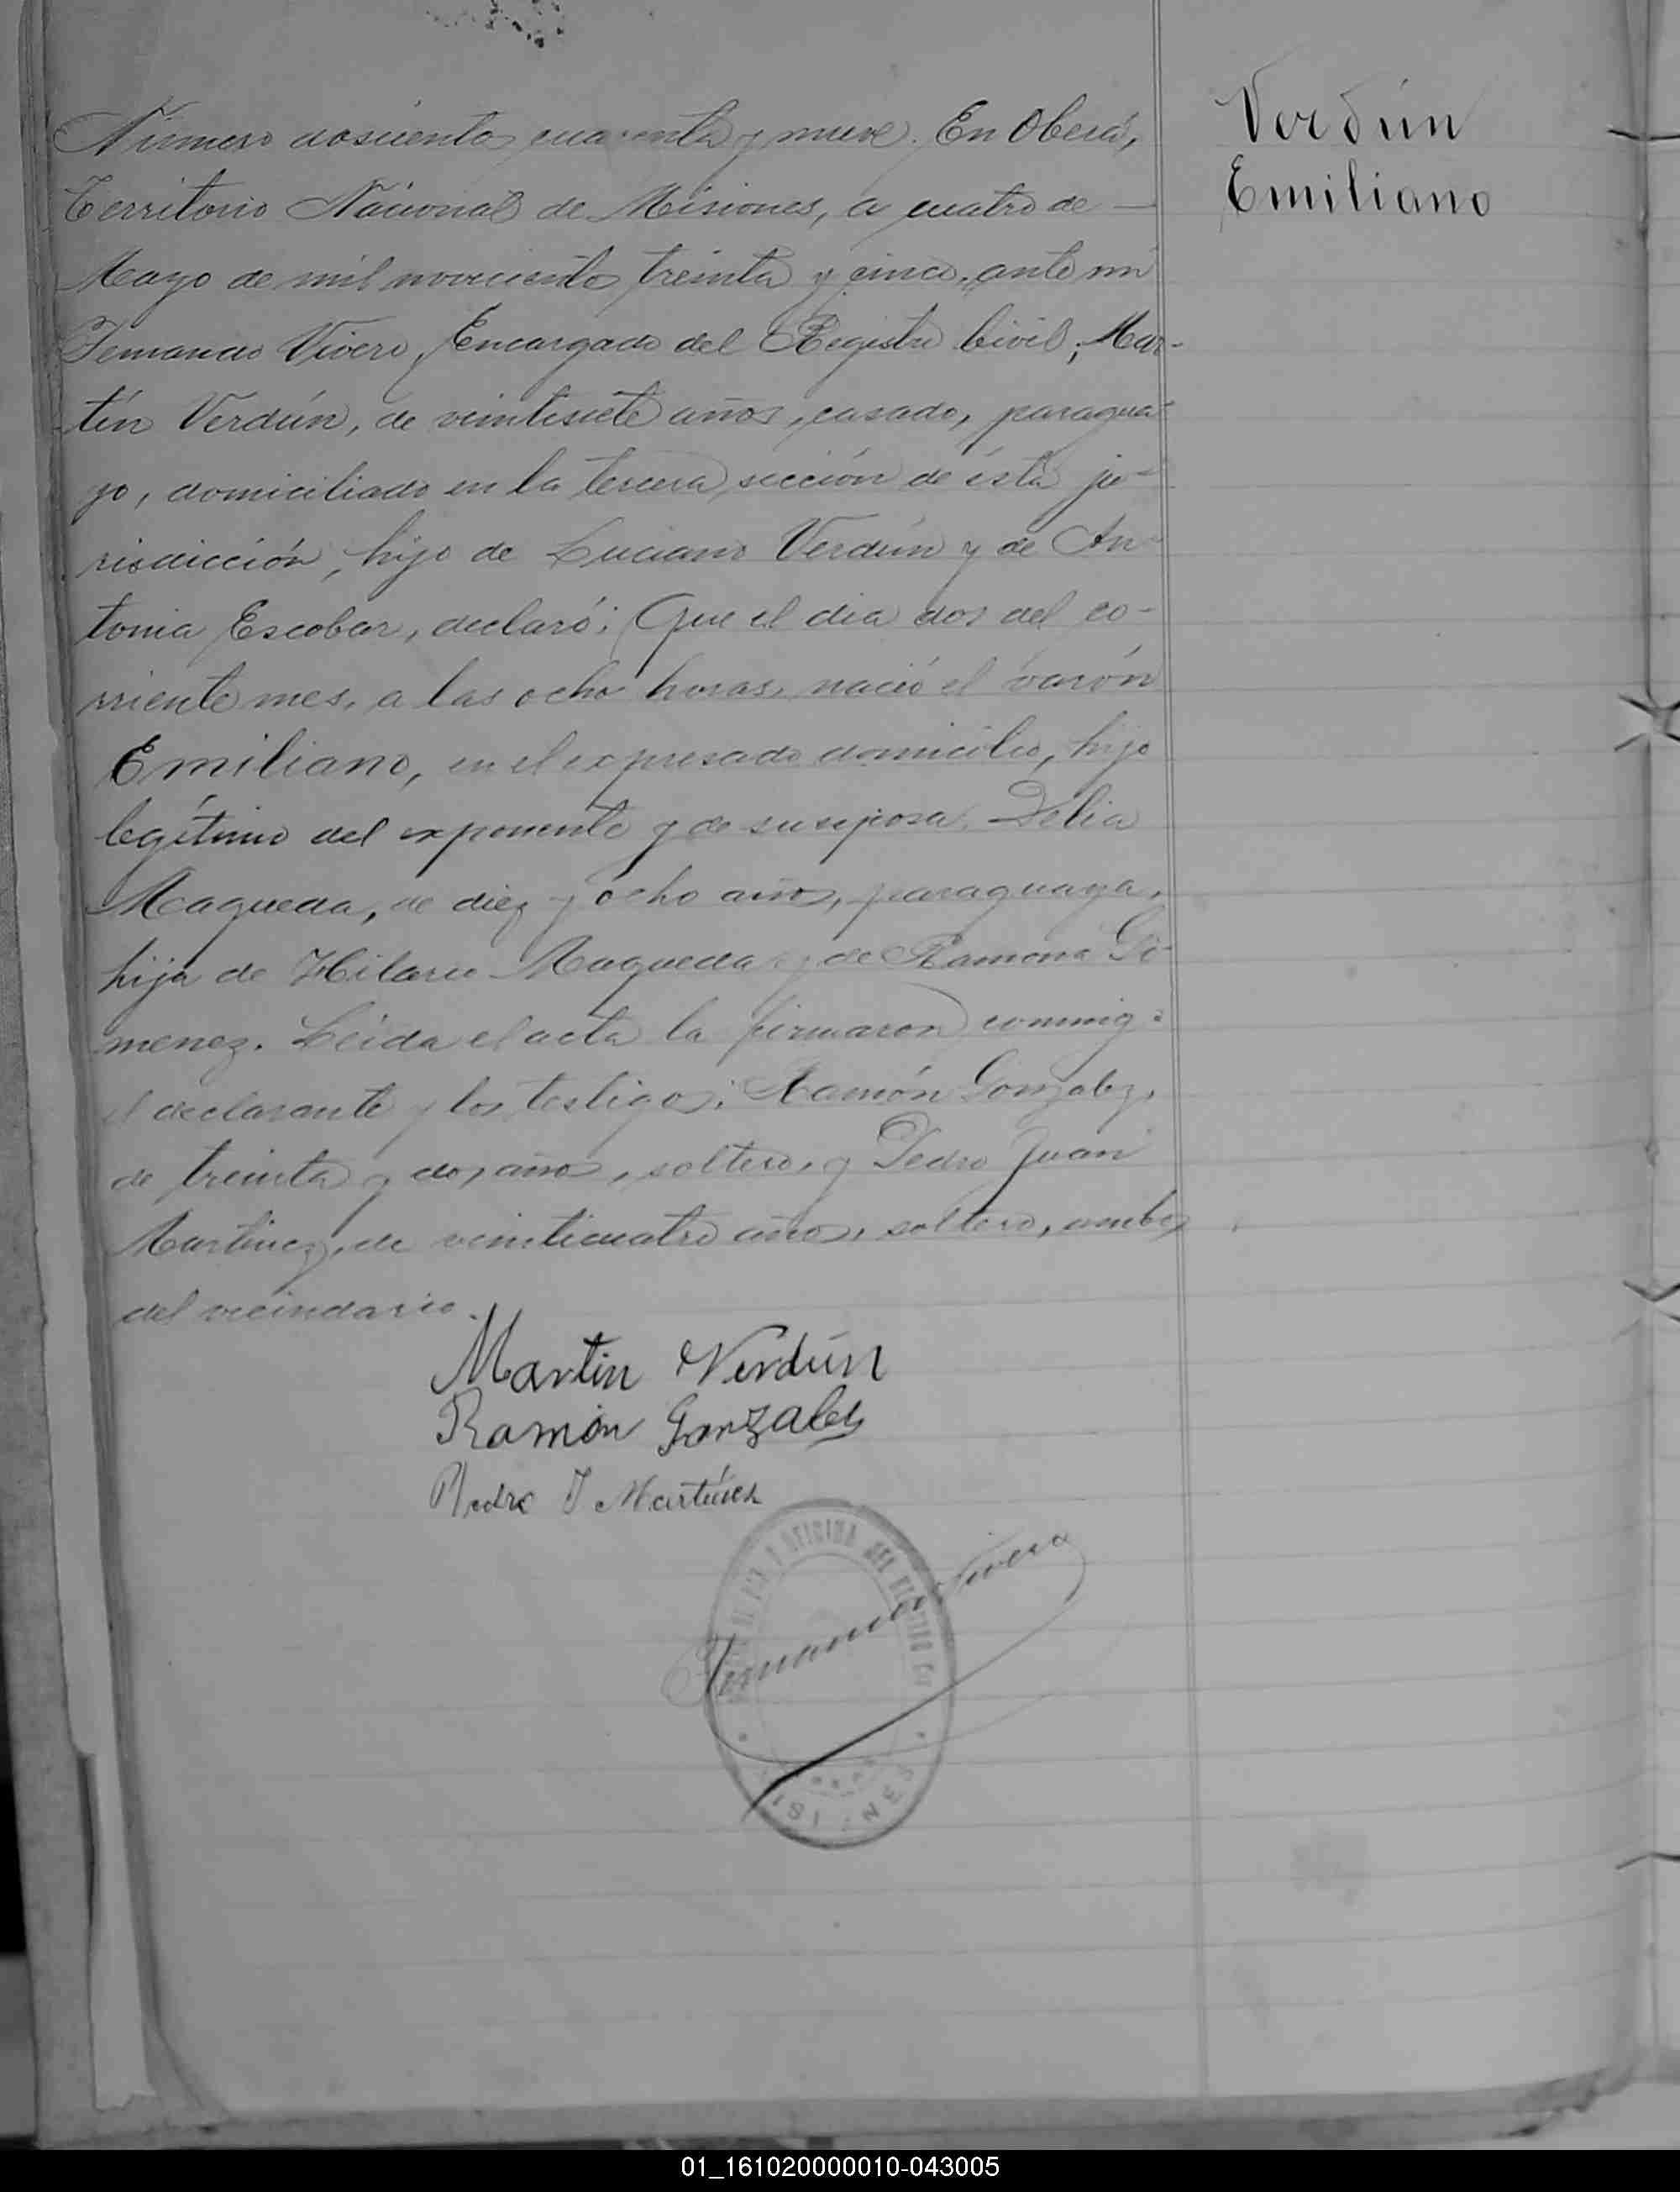 Verdún
Emiliano
Número doscientos cuarenta y nueve. En Oberá,
Territorio Nacional de Misiones, a cuatro de —
Mayo de mil novecientos treinta y cinco, ante mi
Fernando Vivero, Encargado del Registro Civil, Mar-
tín Verdún, de veintisiete años, casado, paragua-
yo, domiciliado en la tercera sección de ésta ju-
risdicción, hijo de Luciano Verdún y de An-
tonia Escobar, declaró: Que el dia dos del co-
rriente mes, a las ocho horas, nació el varón
Emiliano, en el expresado domicilio, hijo
legítimo del exponente y de su esposa Delia
Maqueda, de diez y ocho años, paraguaya,
hija de Hilario Maqueda y de Ramona Gi-
menez. Leída el acta la firmaron conmigo
el declarante y los testigos: Ramón Gonzalez,
de treinta y dos años, soltero, y Pedro Juan
Martinez, de veinticuatro años, soltero, ambos
del vecindario.
Martin Verdún
Ramón Gonzalez
Pedro J Martínez
Fernando Vivero
OFICINA DEL REGISTRO
01_161020000010-043005